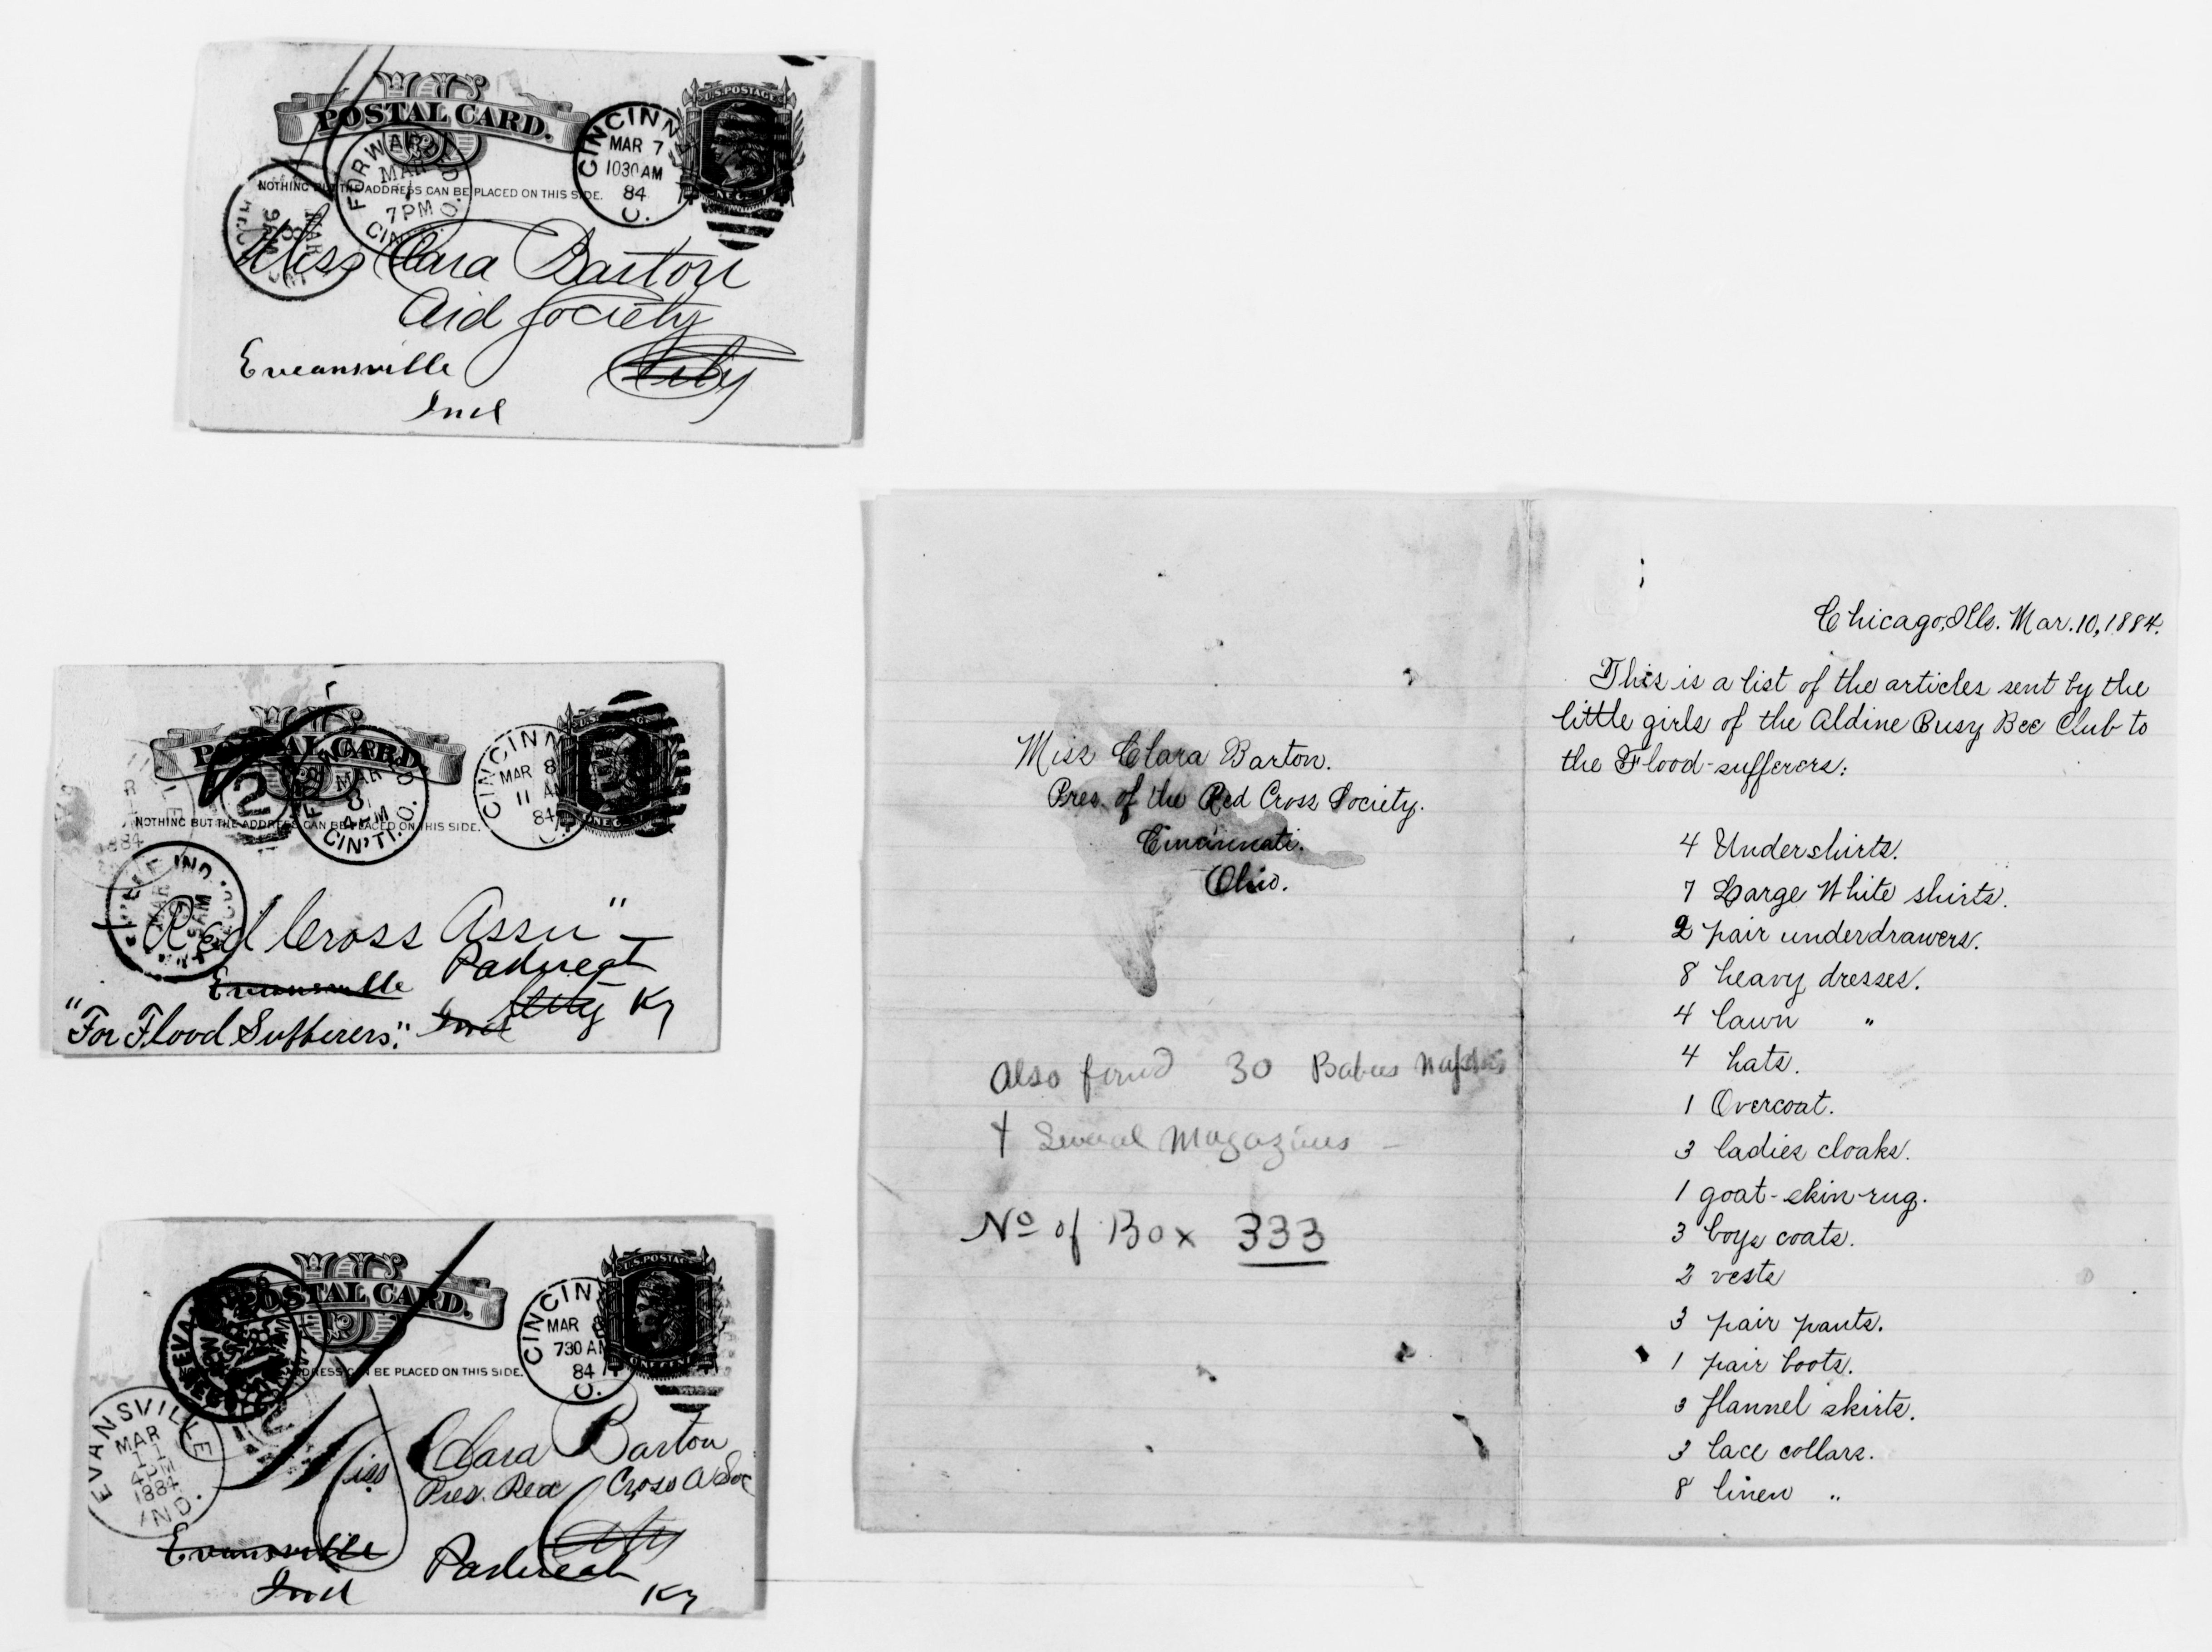 POSTAL CARD.
U.S. POSTAGE
ONE CENT
NOTHING BUT THE ADDRESS CAN BE PLACED ON THIS SIDE.
CINCINN
MAR 7
1030 AM
84
FORWARDED
MAR
7
7 PM
CIN'TI. O.
Miss Clara Barton
Aid Society
City
Eveansville
Ind
POSTAL CARD.
ONE CENT
NOTHING BUT THE ADDRESS CAN BE PLACED ON THIS SIDE.
CINCINN
MAR 8
11 AM
84
2
MAR
8
4 PM
CIN'TI. O.
1884
IND.
Red Cross Assn"
Paducah
Evansville
City Ky
"For Flood Sufferers". Ind
POSTAL CARD.
U.S. POSTAGE
ONE CENT
ADDRESS CAN BE PLACED ON THIS SIDE.
CINCIN
MAR 8
730 AM
84
EVANSVILLE
MAR
11
4 PM
1884
IND.
Miss Clara Barton
Pres. Red Cross A Soc
City
Evansville
Ind
Paducah
Ky
Miss Clara Barton.
Pres. of the Red Cross Society.
Cincinnati.
Ohio.
Also found 30 Babies Napkins
+ Several Magazines -
No of Box 333
Chicago, Ills. Mar. 10, 1884.
This is a list of the articles sent by the
little girls of the Aldine Busy Bee Club to
the Flood-sufferers:
4 Undershirts.
7 Large White shirts.
2 pair underdrawers.
8 heavy dresses.
4 lawn "
4 hats.
1 Overcoat.
3 ladies cloaks.
1 goat-skin-rug.
3 boys coats.
2 vests
3 pair pants.
1 pair boots.
3 flannel skirts.
3 lace collars.
8 linen "